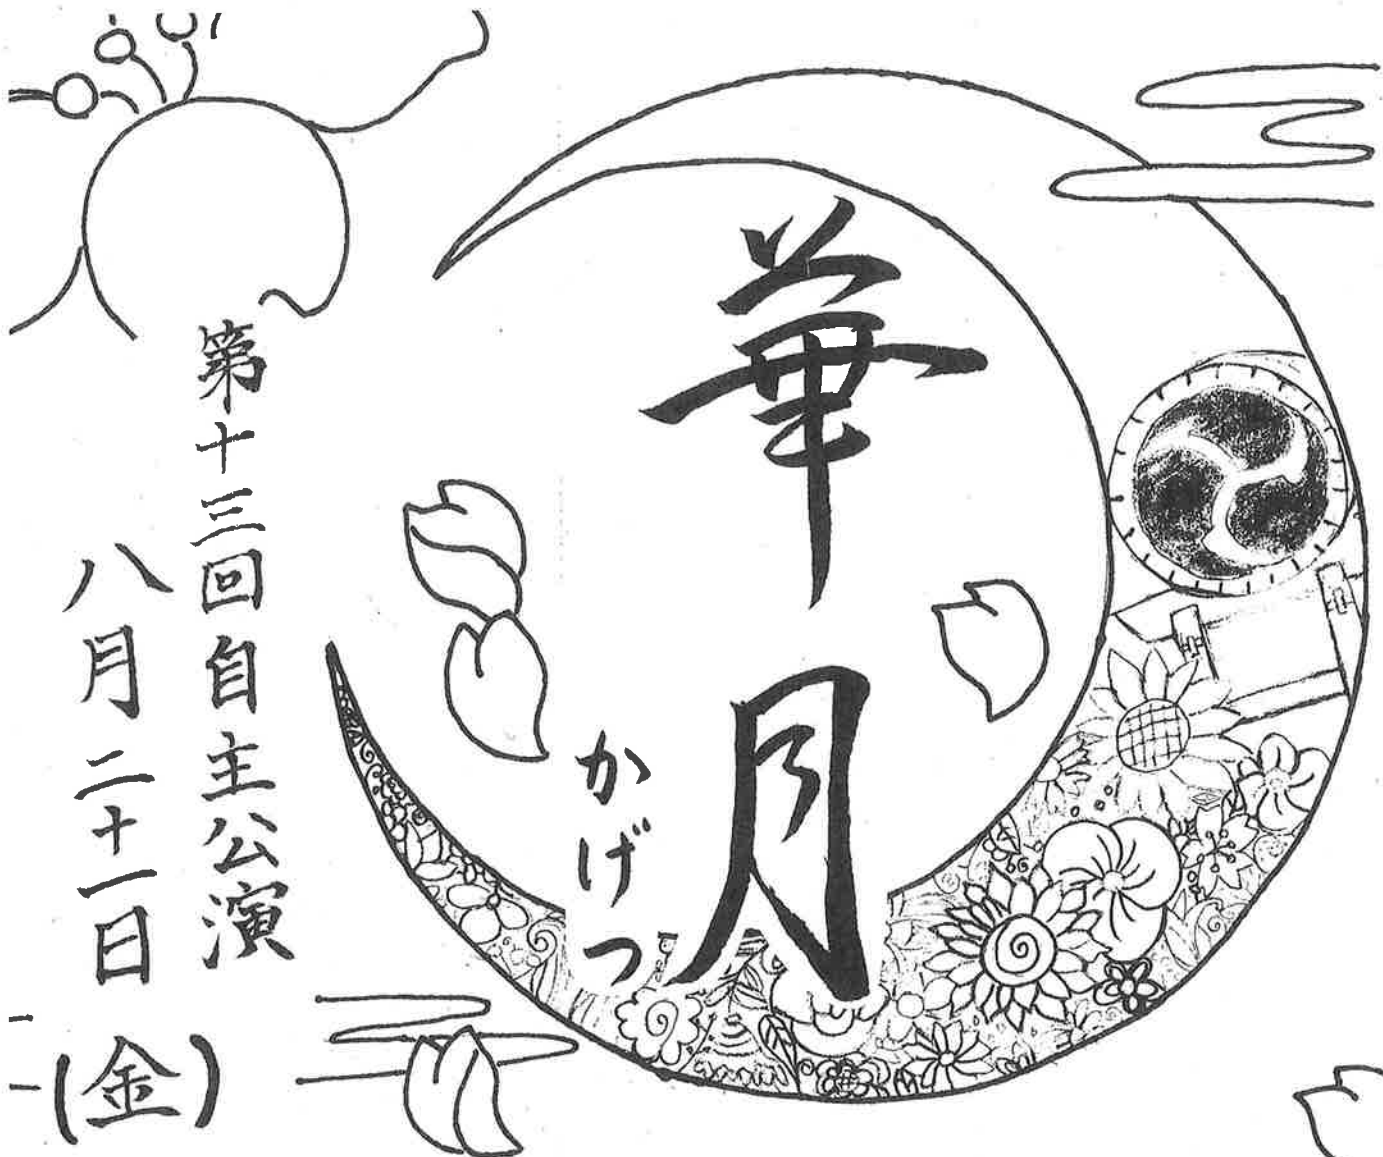 華月
かげつ
第十三回自主公演
八月二十一日
(金)